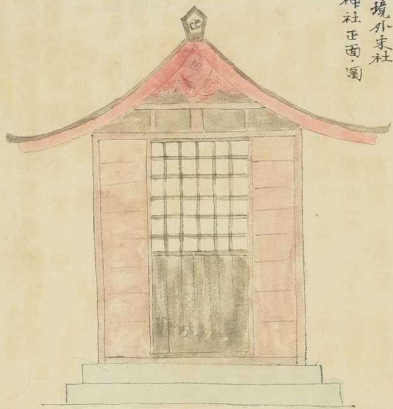 境外末社
神社正面ノ圖